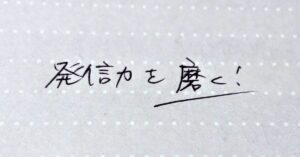 発信力を磨く!